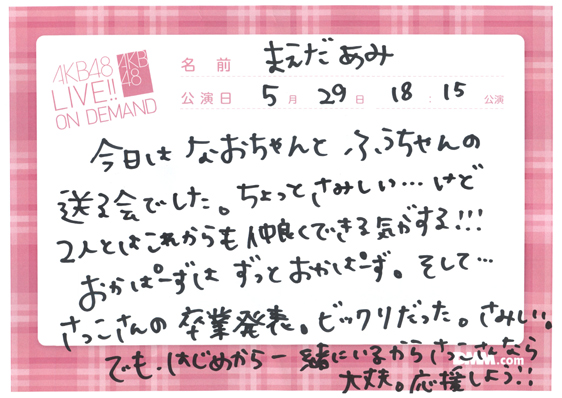 AKB48
LIVE!!
ON DEMAND
AKB
48
名前 まえだあみ
公演日 5月29日 18:15公演
今日は なおちゃんと ふうちゃんの
送る会でした。ちょっと さみしい…けど
2人とはこれからも 仲良くできる気がする!!!
おかぱーずは ずっと おかぱーず。そして…
さっこさんの 卒業発表。ビックリだった。さみしい。
でも、はじめから一緒にいるから さっこさんなら
.com
大丈夫。応援しよう!!